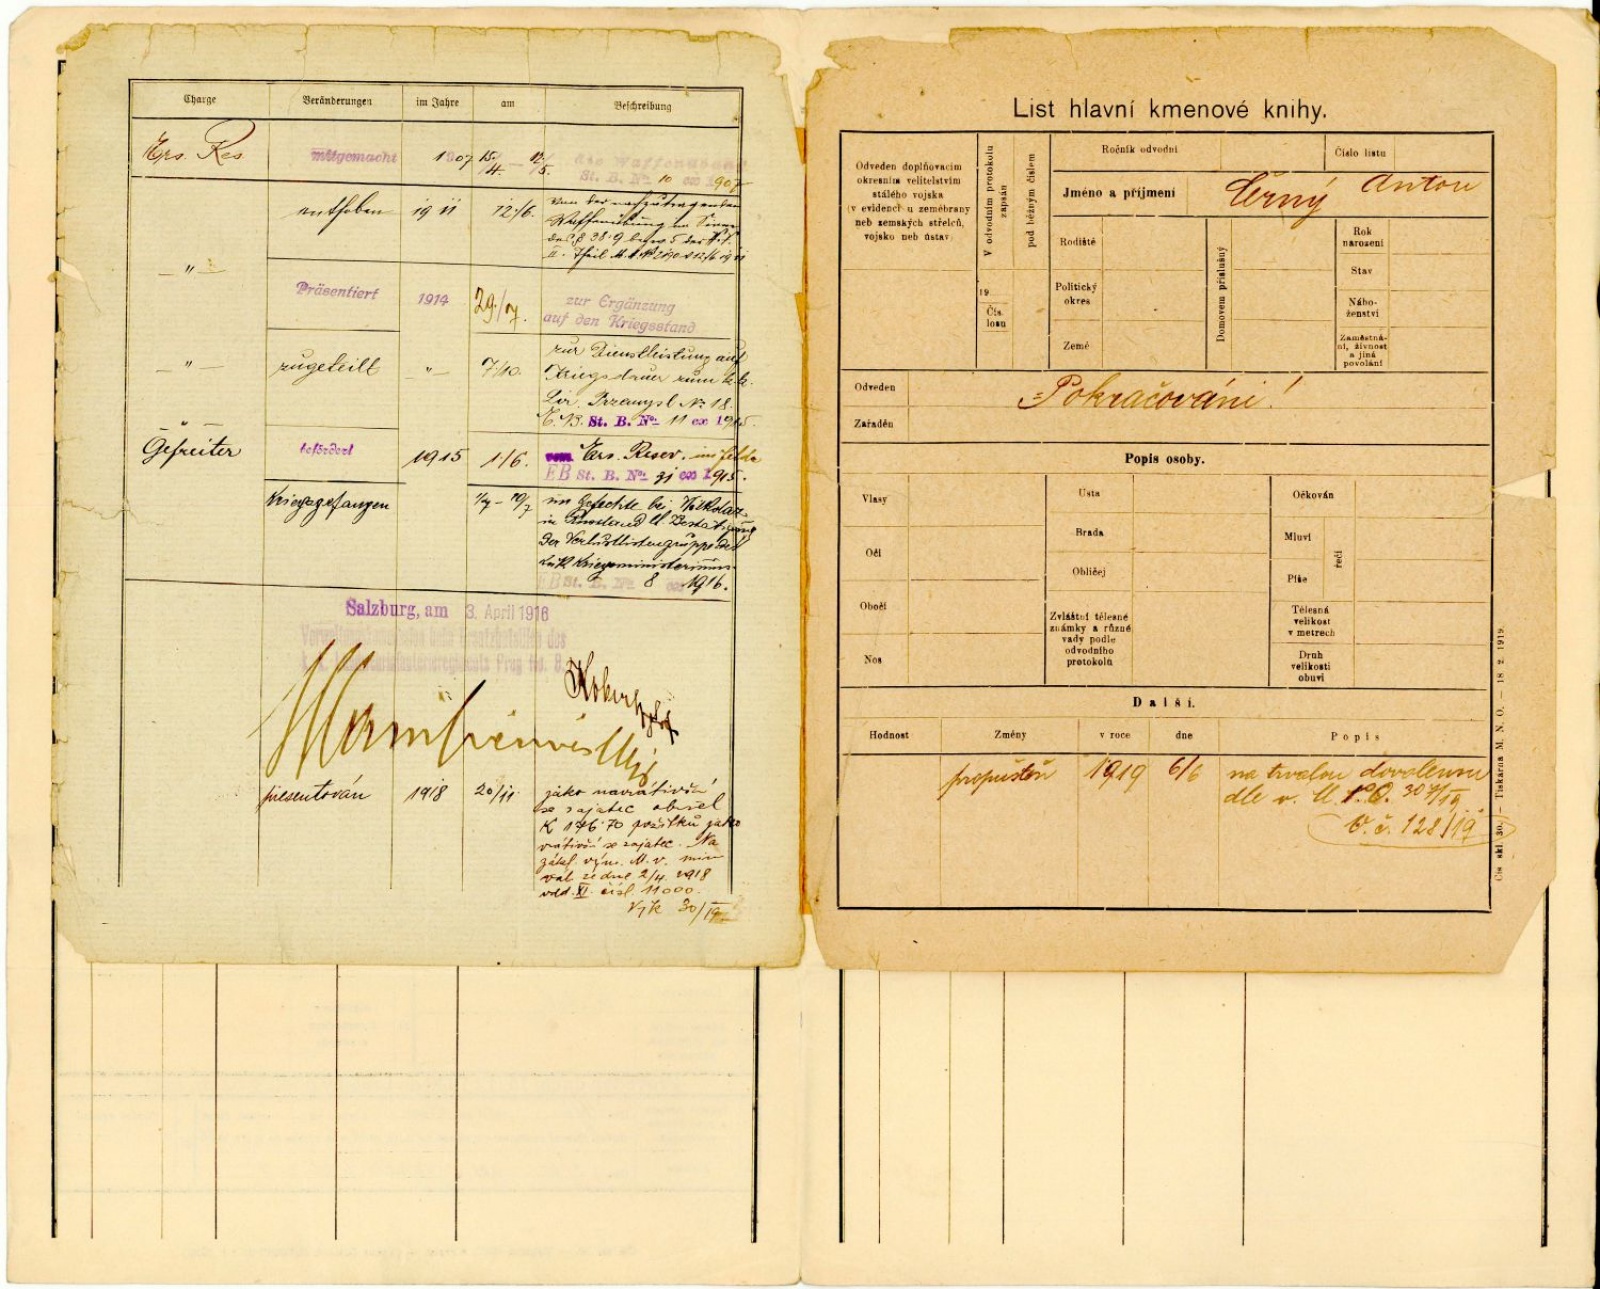 Charge Veränderungen im Jahre am Beschreibung
Ers. Res. mitgemacht 1907 15/4 — 12/5. die Waffenübung
St. B. No 10 ex 1907
enthoben 1911 12/6. von der nachzutragenden
Waffenübung im Sinne
des § 38:9
II. Theil
— " —
Präsentiert 1914 29./7. zur Ergänzung
auf den Kriegsstand
— " — zugeteilt — " — 7/10. zur Dienstleistung auf
Kriegsdauer zum k.k.
Lir. Przemysl No 18.
E.B. St. B. No 11 ex 1915.
Gefreiter befördert 1915 1/6. vom Ers. Reserv. im Felde
EB St. B. No 31 ex 1915.
Kriegsgefangen 1/7 – 10/7 im Gefechte bei
in Russland lt. Bestätigung
der Verlustlistengruppe des
k.u.k. Kriegsministeriums
EB St. B. No 8 ex 1916.
Salzburg, am 3. April 1916
des
Prag No. 8.
presentován 1918 20/11. jako navrátivší
se zajatec obnsel
K 176·70 požitků jako
vrátivší se zajatec. Na
zákl. výn. M. v. min
val. ze dne 2/4. 1918
odd. XI. čísl. 11000.
30/IV
List hlavní kmenové knihy.
Odveden doplňovacím
okresním velitelstvím
stálého vojska
(v evidenci u zeměbrany
neb zemských střelců,
vojsko neb ústav)
V odvodním protokolu
zapsán
pod běžným číslem
19
Čís.
losu
Ročník odvodní
Číslo listu
Jméno a příjmení Černý Anton
Rodiště
Politický
okres
Země
Domovem příslušný
Rok
narození
Stav
Nábo-
ženství
Zaměstná-
ní, živnost
a jiná
povolání
Odveden
Zařaděn
= Pokračování!
Popis osoby.
Vlasy
Oči
Obočí
Nos
Ústa
Brada
Obličej
Zvláštní tělesné
známky a různé
vady podle
odvodního
protokolu
Očkován
Mluví
Píše
řečí
Tělesná
velikost
v metrech
Druh
velikosti
obuvi
Další.
Hodnost Změny v roce dne Popis
propuštěn 1919 6/6 na trvalou dovolenou
dle v.
V. č. 128/19
Čís. skl. 30. — Tiskárna M. N. O. — 18. 2. 1919.